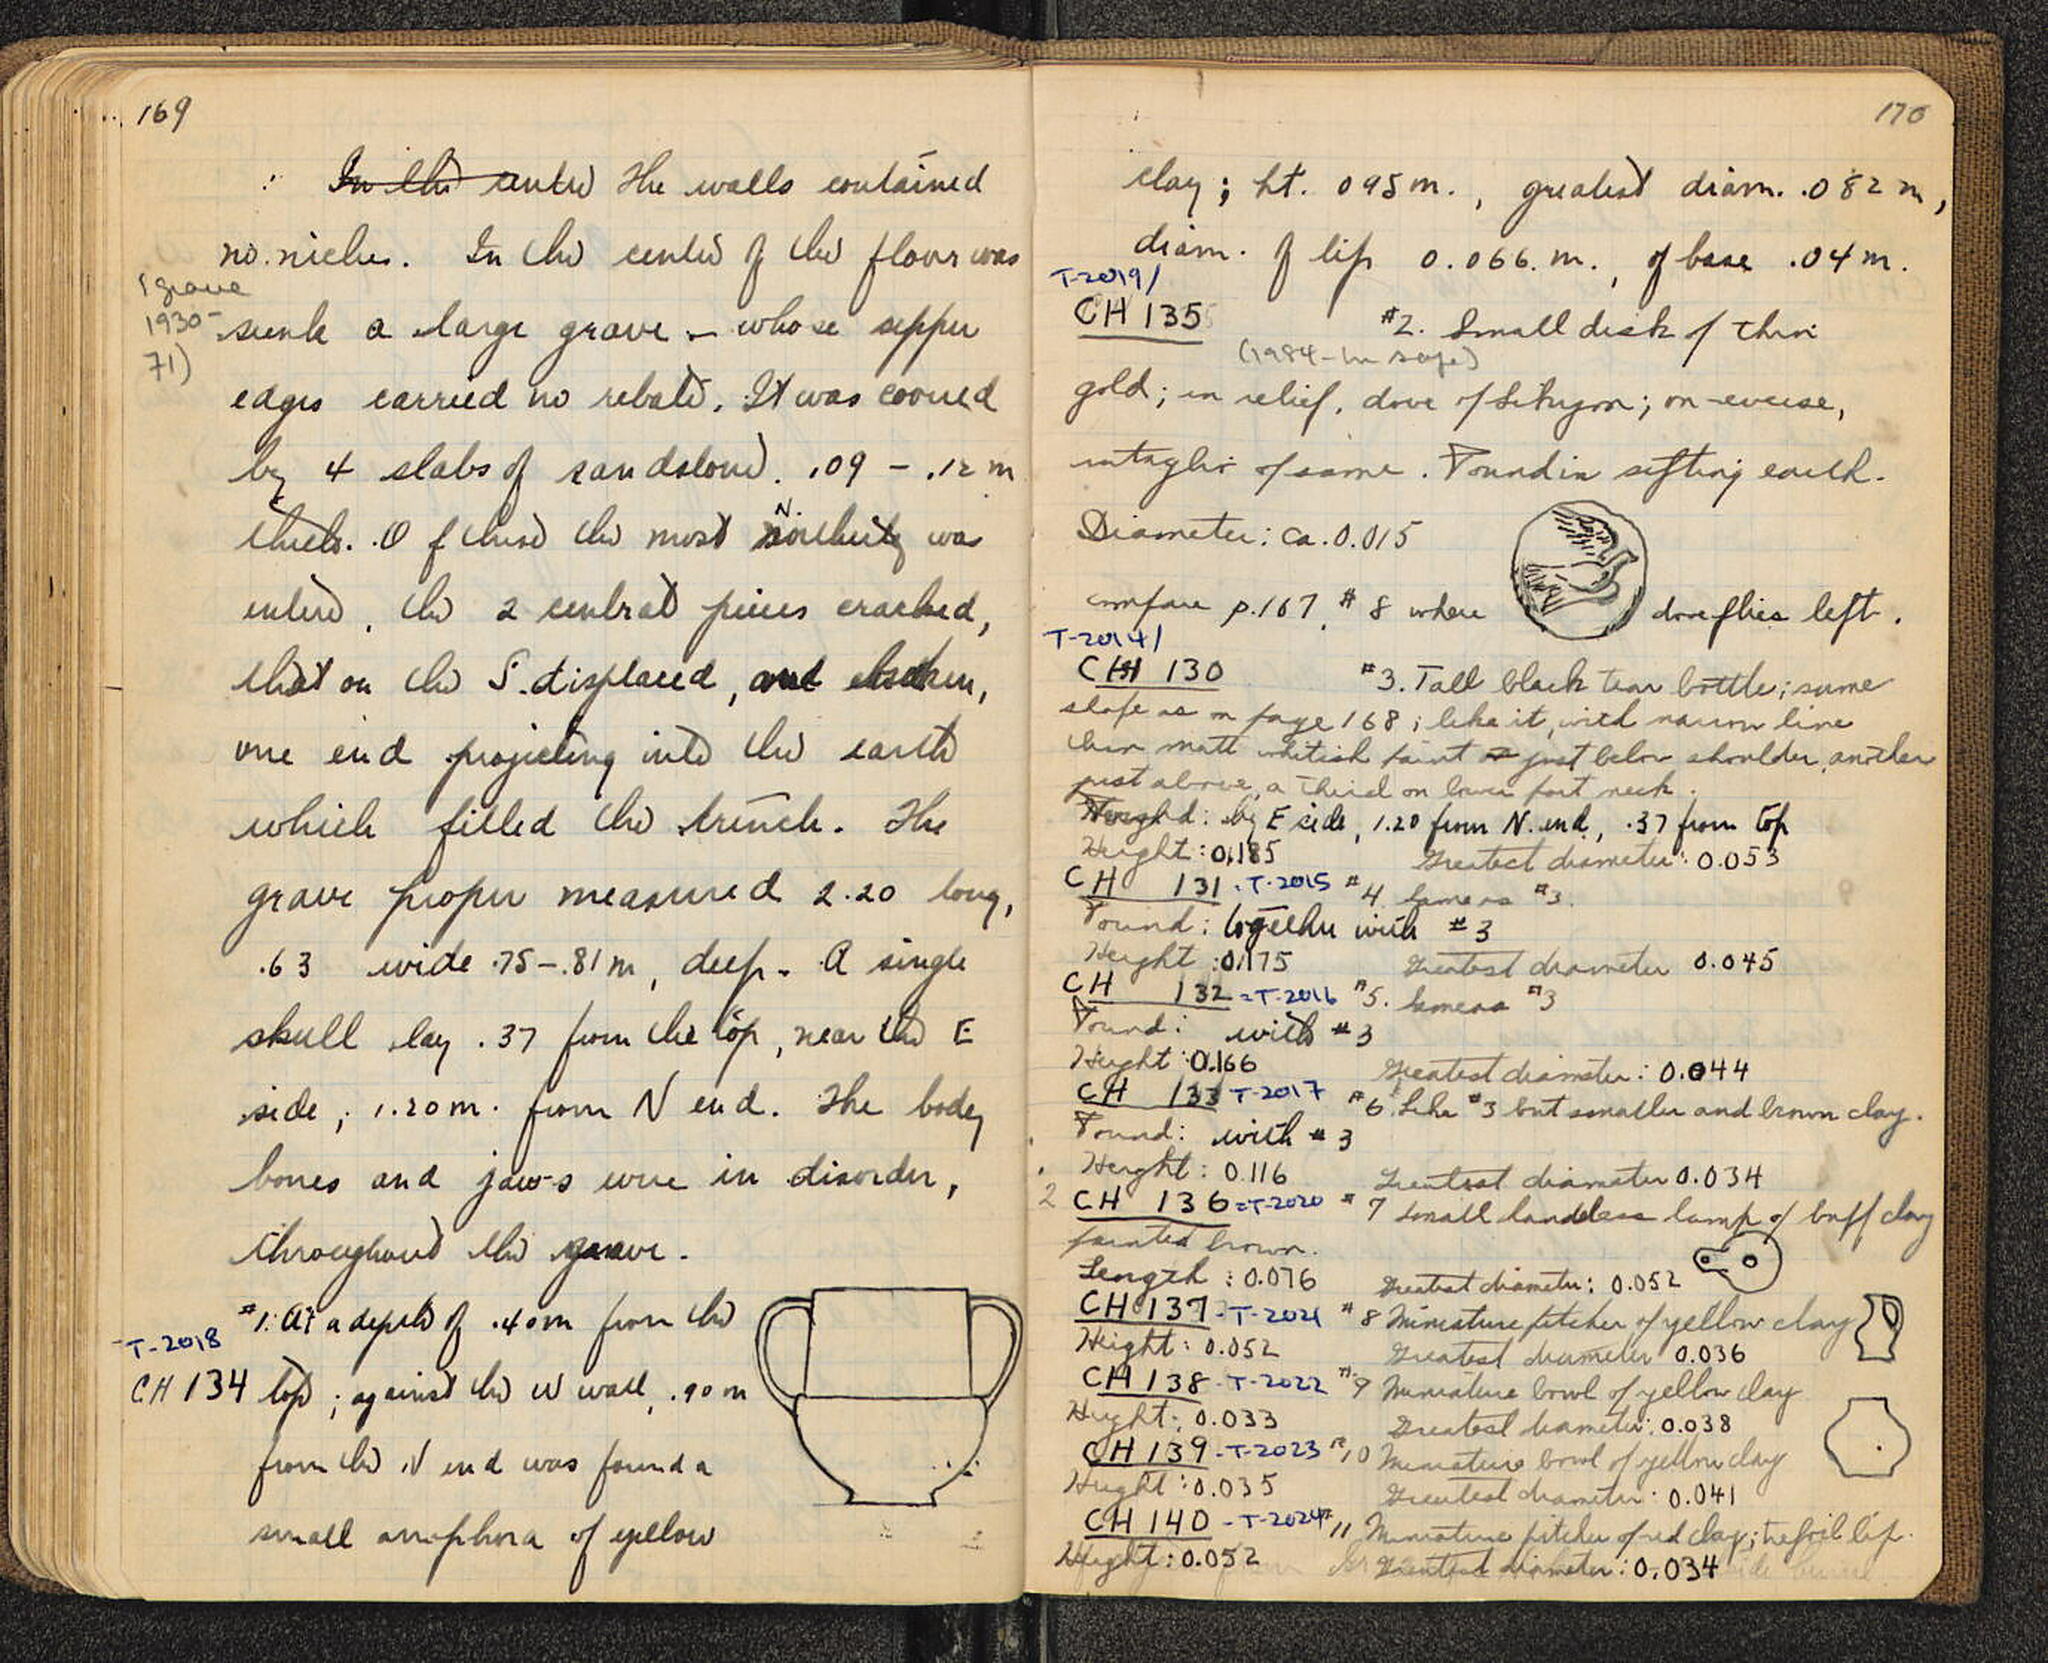 169
In the center The walls contained
no niches. In the center of the floor was
(grave
1930-
71)
sunk a large grave - whose upper
edges carried no rebate. It was covered
by 4 slabs of sandstone. .09 - .12 m
thick. Of these the most N. northerly was
entire, the 2 central pieces cracked,
that on the S. displaced, and broken,
one end projecting into the earth
which filled the trench. The
grave proper measured 2.20 long,
.63 wide .75-.81 m, deep. A single
skull lay .37 from the top, near the E
side, 1.20 m. from N end. The body
bones and jaws were in disorder,
throughout the grave.
#1. At a depth of .40 m from the
T-2018
CH 134 top; against the W wall, .90 m
from the N end was found a
small amphora of yellow
170
clay; ht. 095 m., greatest diam. .082 m,
diam. of lip 0.066. m., of base .04 m.
T-2019/
CH 135 #2. Small disk of thin
(1984-in safe)
gold; in relief, dove of Sikyon; on reverse,
intaglio of same. Found in sifting earth.
Diameter: ca. 0.015
compare p. 167, #8 where dove flies left.
T-2014/
CH 130 #3. Tall black tear bottle; same
shape as on page 168; like it, with narrow line
thin matt whitish paint just below shoulder, another
just above, a third on lower part neck.
Found: by E side, 1.20 from N. end, .37 from top
Height: 0.185 Greatest diameter: 0.053
CH 131 - T-2015 #4 Same as #3.
Found: together with #3
Height: 0.175 Greatest diameter 0.045
CH 132 = T-2016 #5. Same as #3
Found: with #3
Height: 0.166 Greatest diameter: 0.044
CH 133 - T-2017 #6 Like #3 but smaller and brown clay.
Found: with #3
Height: 0.116 Greatest diameter 0.034
2 CH 136 = T-2020 #7 Small handleless lamp of buff clay
painted brown.
Length: 0.076 Greatest diameter: 0.052
CH 137 - T-2021 #8 Miniature pitcher of yellow clay
Height: 0.052 Greatest diameter 0.036
CH 138 - T-2022 #9 Miniature bowl of yellow clay
Height: 0.033 Greatest diameter: 0.038
CH 139 - T-2023 #10 Miniature bowl of yellow clay
Height: 0.035 Greatest diameter: 0.041
CH 140 - T-2024 #11 Miniature pitcher of red clay; trefoil lip.
Height: 0.052 Greatest diameter: 0.034